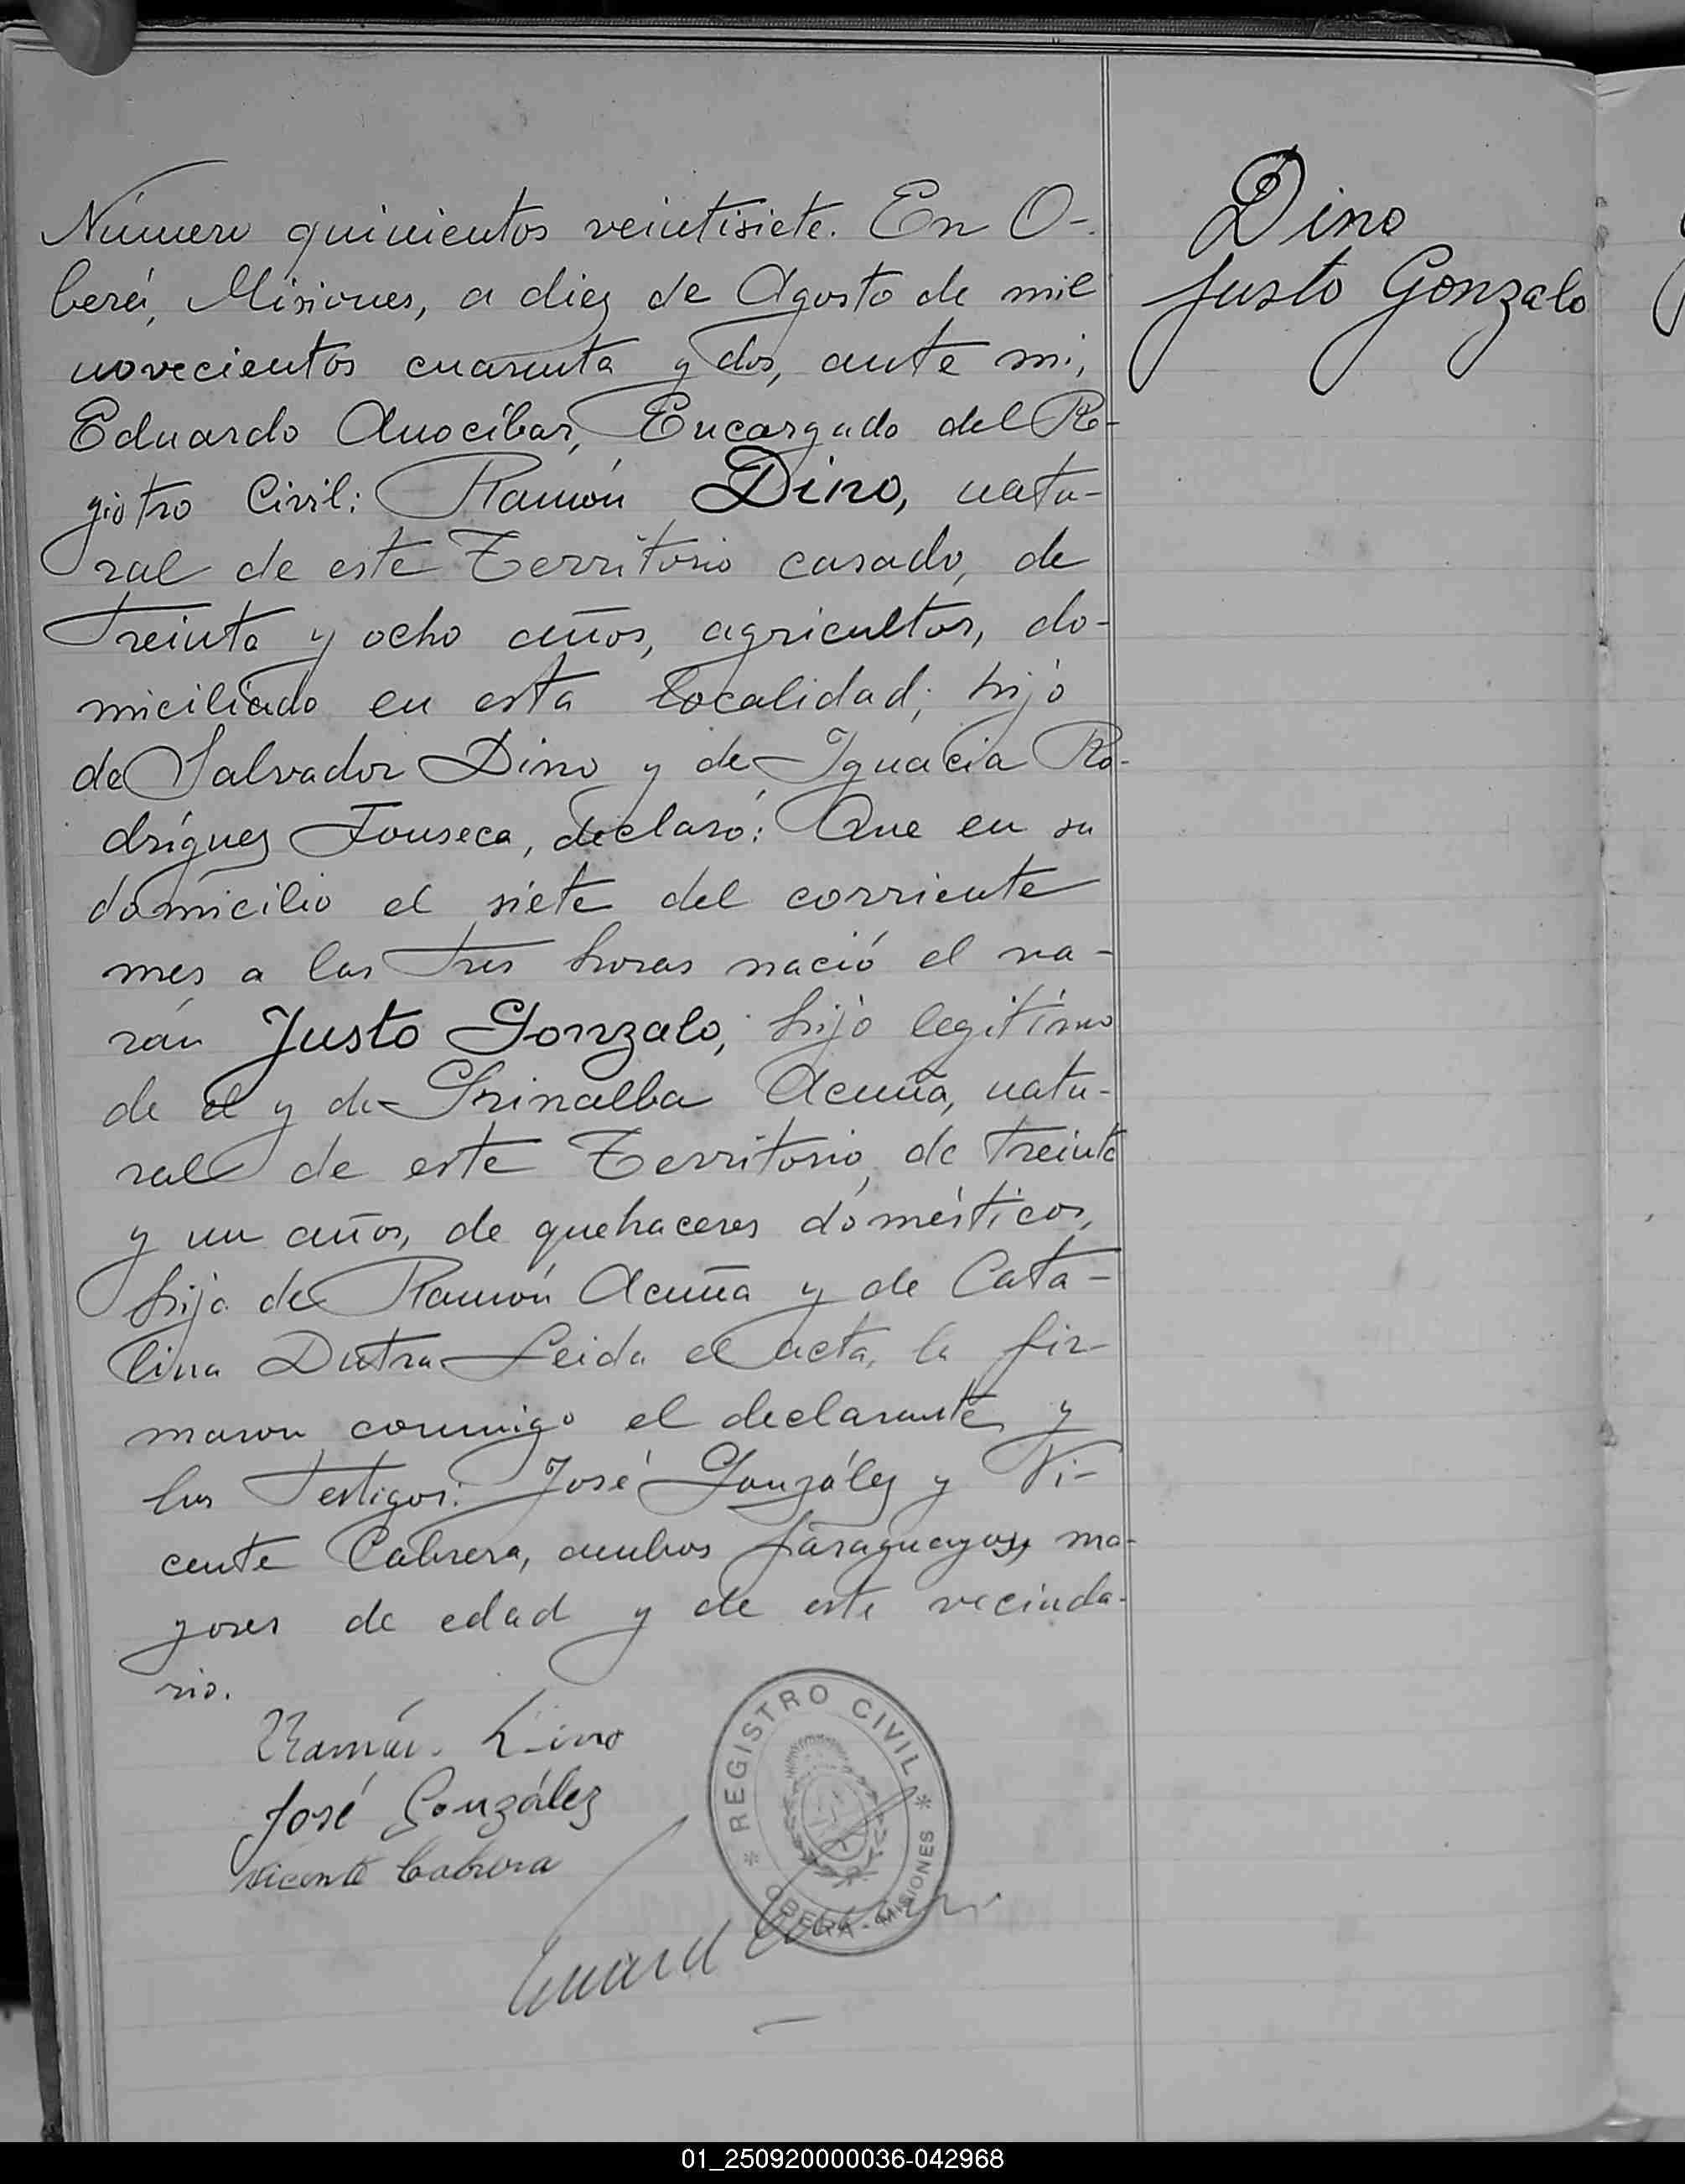 Dino
Justo Gonzalo
Número quinientos veintisiete. En O-
berá, Misiones, a diez de Agosto de mil
novecientos cuarenta y dos, ante mi,
Eduardo Anocíbar, Encargado del Re-
gistro Civil: Ramón Dino, natu-
ral de este Territorio casado, de
treinta y ocho años, agricultor, do-
miciliado en esta localidad; hijo
de Salvador Dino y de Ignacia Ro-
dríguez Fonseca, declaró: Que en su
domicilio el siete del corriente
mes a las tres horas nació el va-
rón Justo Gonzalo, hijo legítimo
de el y de Grinalba Acuña, natu-
ral de este Territorio, de treinta
y un años, de quehaceres domésticos,
hija de Ramón Acuña y de Cata-
lina Dutra Leida el acta, la fir-
maron conmigo el declarante y
los testigos: José González y Vi-
cente Cabrera, ambos paraguayos, ma-
yores de edad y de este vecinda-
rio.
Ramón Dino
José González
Vicente Cabrera
* REGISTRO CIVIL *
OBERÁ - MISIONES
01_250920000036-042968